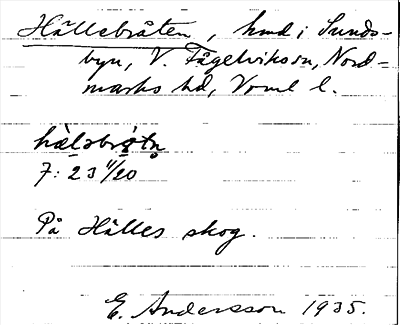 Hällebråten, hmd i Sunds-
byn, V. Fågelviks sn, Nord-
marks hd, Vrml l.
hä̀ləbrǫtn̥
7: 23 11/20
På Hälles skog.
E. Andersson 1935.